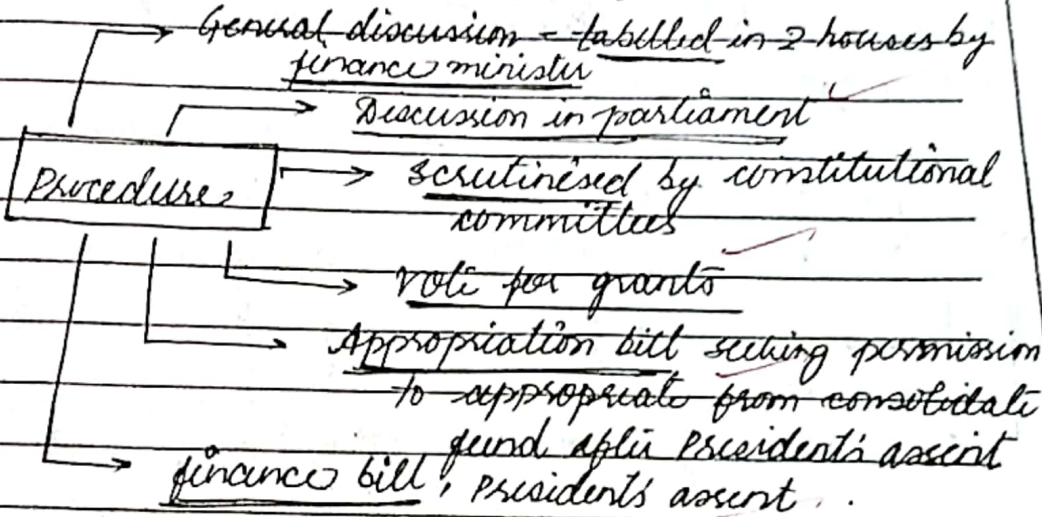 General discussion - tabelled in 2 houses by
finance minister
Discussion in parliament
Procedure
scrutinised by constitutional
committees
vote for grants
Appropriation bill seeking permission
to appropriate from consolidate
fund after President's assent
finance bill, President's assent.